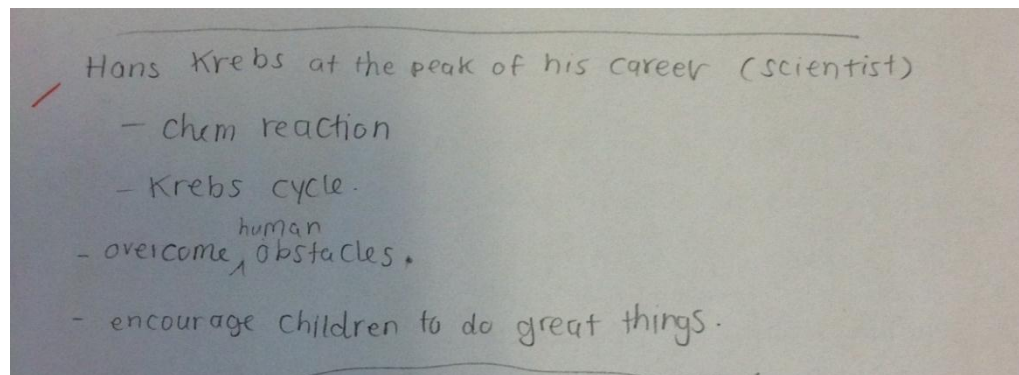 Hans Krebs at the peak of his career (scientist)
- Chem reaction
- Krebs cycle.
- overcome human obstacles.
- encourage children to do great things.